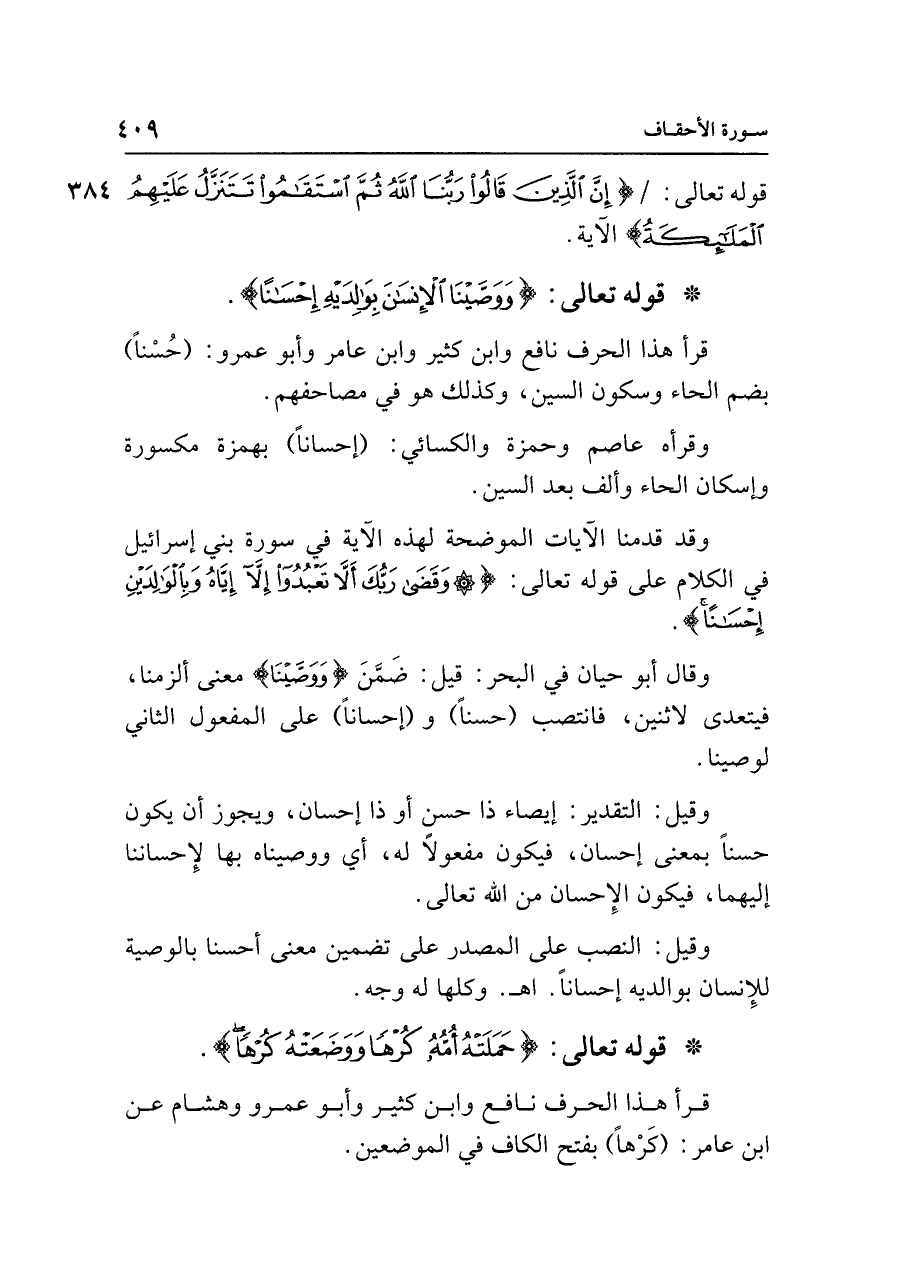 سورة الأحقاف ٤٠٩
قوله تعالى: / ﴿إِنَّ ٱلَّذِينَ قَالُواْ رَبُّنَا ٱللَّهُ ثُمَّ ٱسْتَقَٰمُواْ تَتَنَزَّلُ عَلَيْهِمُ ٣٨٤
ٱلْمَلَٰٓئِكَةُ﴾ الآية.
* قوله تعالى: ﴿وَوَصَّيْنَا ٱلْإِنسَٰنَ بِوَٰلِدَيْهِ إِحْسَٰنًا﴾.
قرأ هذا الحرف نافع وابن كثير وابن عامر وأبو عمرو: (حُسْناً)
بضم الحاء وسكون السين، وكذلك هو في مصاحفهم.
وقرأه عاصم وحمزة والكسائي: (إحساناً) بهمزة مكسورة
وإسكان الحاء وألف بعد السين.
وقد قدمنا الآيات الموضحة لهذه الآية في سورة بني إسرائيل
في الكلام على قوله تعالى: ﴿۞ وَقَضَىٰ رَبُّكَ أَلَّا تَعْبُدُوٓاْ إِلَّآ إِيَّاهُ وَبِٱلْوَٰلِدَيْنِ
إِحْسَٰنًاۚ﴾.
وقال أبو حيان في البحر: قيل: ضَمَّنَ ﴿وَوَصَّيْنَا﴾ معنى ألزمنا،
فيتعدى لاثنين، فانتصب (حسناً) و (إحساناً) على المفعول الثاني
لوصينا.
وقيل: التقدير: إيصاء ذا حسن أو ذا إحسان، ويجوز أن يكون
حسناً بمعنى إحسان، فيكون مفعولاً له، أي ووصيناه بها لإحساننا
إليهما، فيكون الإحسان من الله تعالى.
وقيل: النصب على المصدر على تضمين معنى أحسنا بالوصية
للإنسان بوالديه إحساناً. اهـ. وكلها له وجه.
* قوله تعالى: ﴿حَمَلَتْهُ أُمُّهُۥ كُرْهًا وَوَضَعَتْهُ كُرْهًاۖ﴾.
قرأ هذا الحرف نافع وابن كثير وأبو عمرو وهشام عن
ابن عامر: (كَرْهاً) بفتح الكاف في الموضعين.